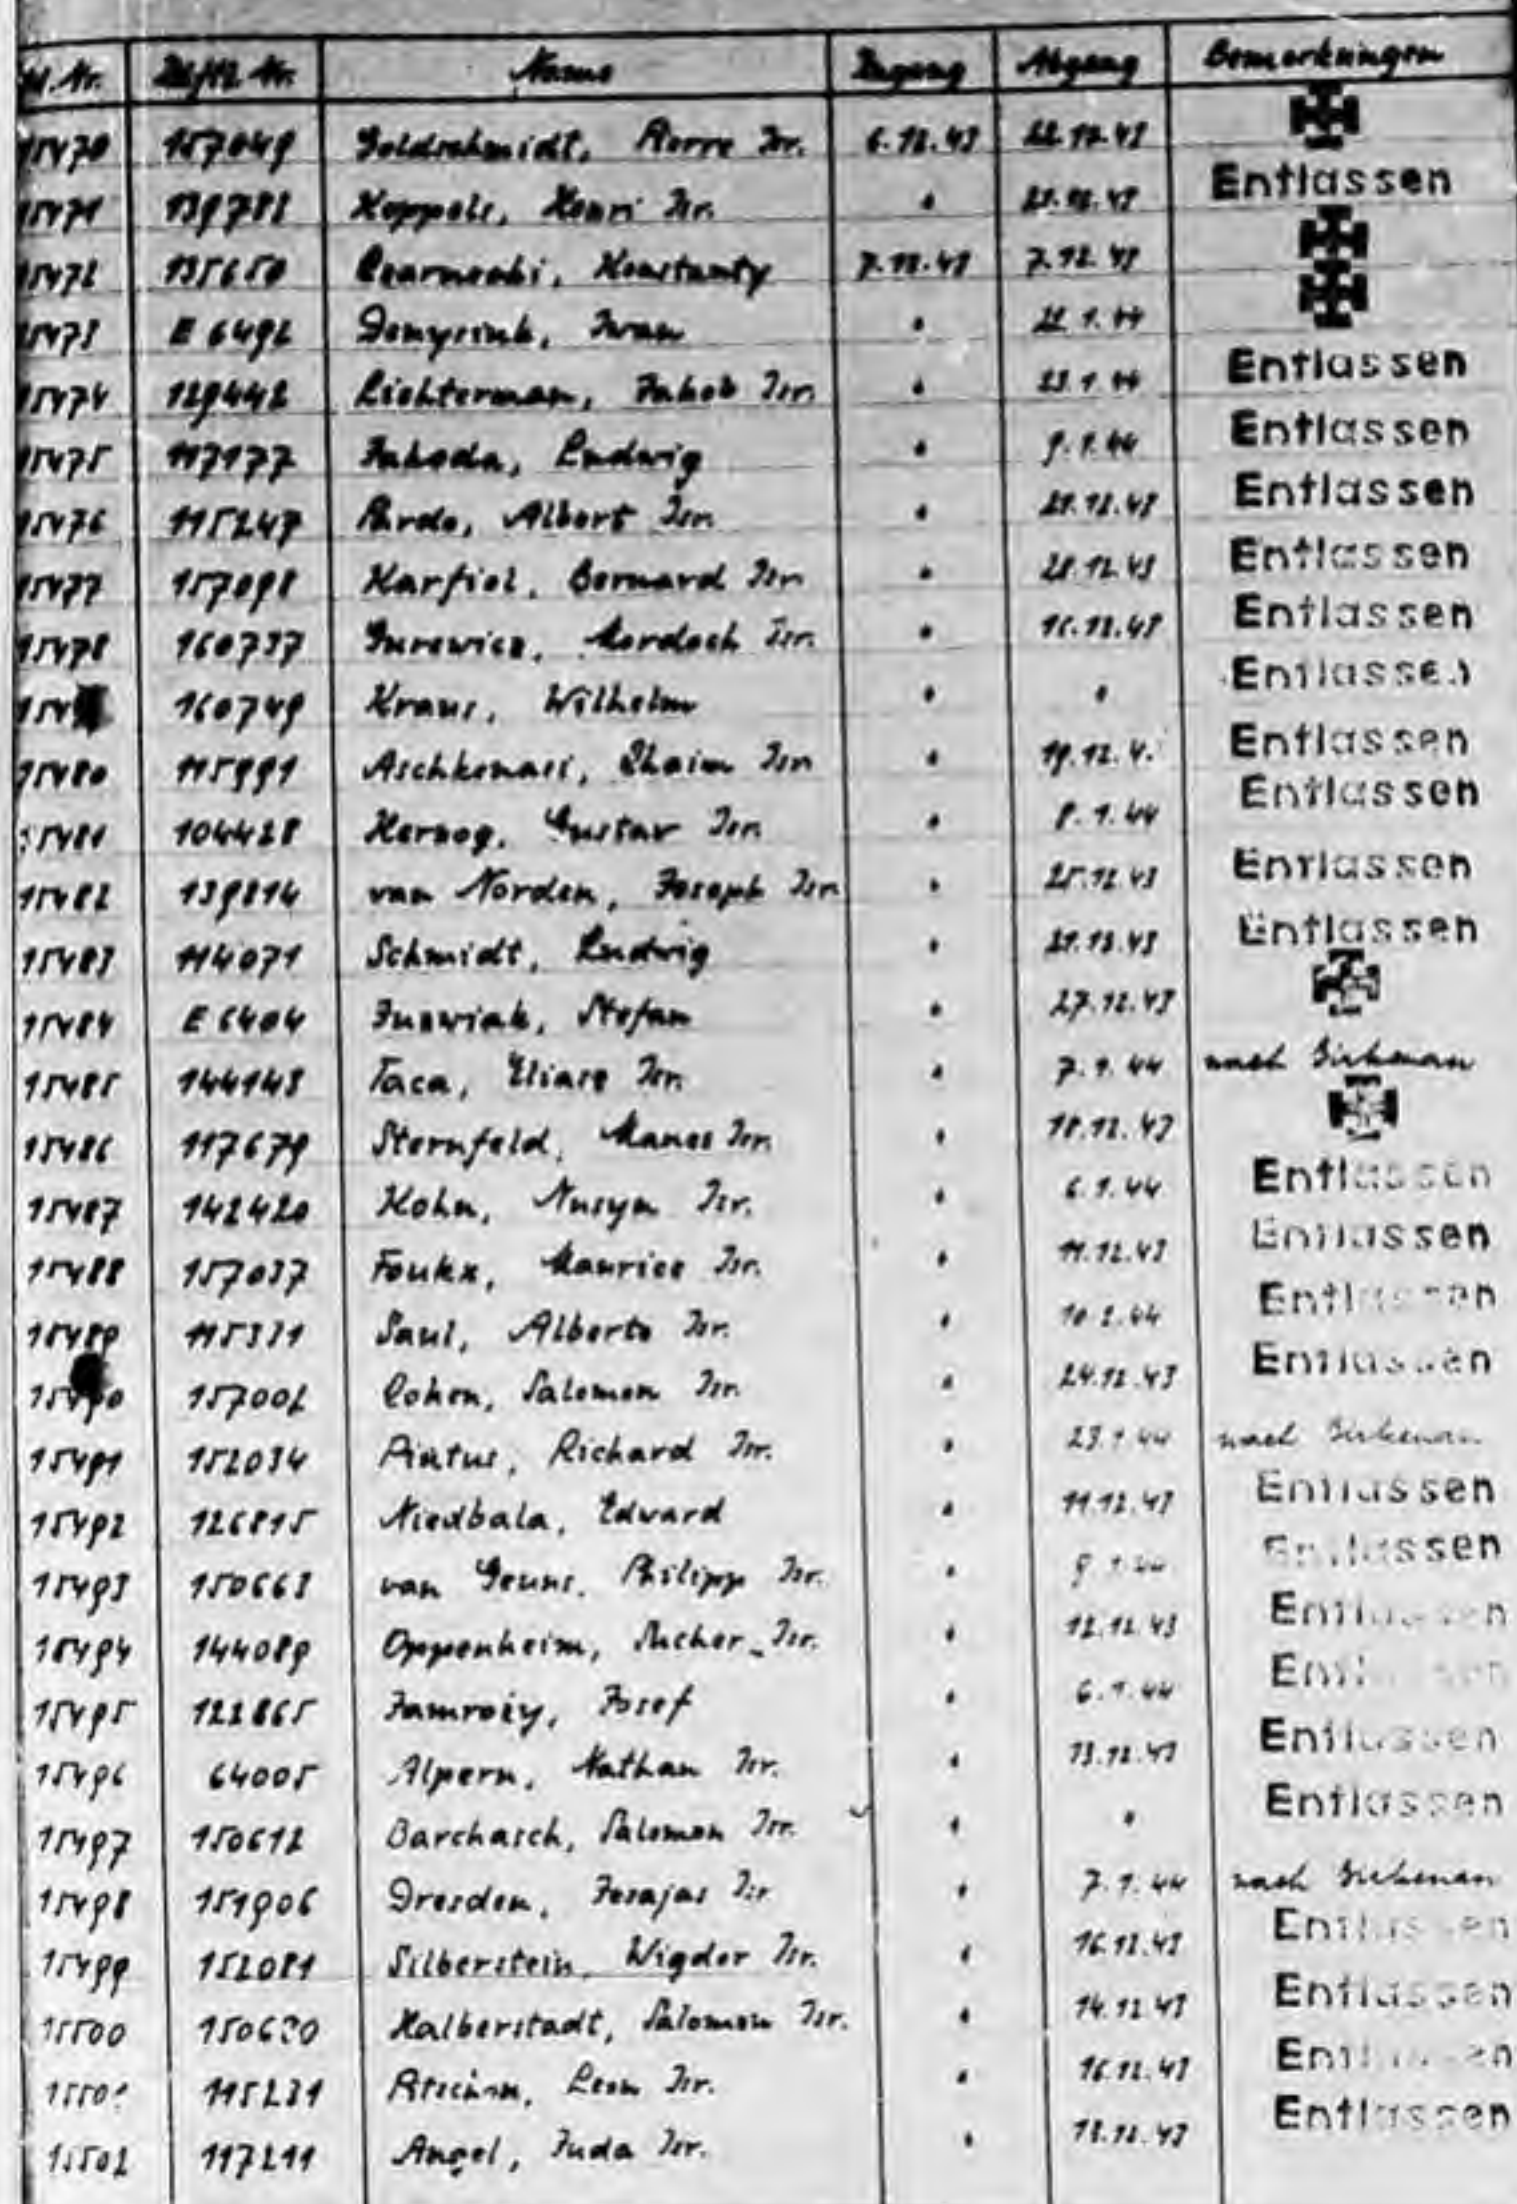 Name Zugang Abgang Bemerkungen
15470 157049 Goldschmidt, Pierre Isr. 6.12.43 22.12.43
15471 139782 Koppels, Henri Isr. " Entlassen
15472 135650 Czarnecki, Konstanty 7.12.43 7.12.43
15473 E 6492 Iwan " 22.1.44
15474 129442 Lichterman, Jakob Isr. " 23.1.44 Entlassen
15475 117177 Jahoda, Ludwig " 9.1.44 Entlassen
15476 115247 Pardo, Albert Isr. " 21.12.43 Entlassen
15477 157098 Karfiol, Bernard Isr. " 28.12.43 Entlassen
15478 160737 Gurewicz, Mordoch Isr. " 16.12.43 Entlassen
160749 Kraus, Wilhelm " " Entlassen
15480 115991 Aschkenasi, Chaim Isr. " 19.12. Entlassen
15481 104428 Herzog, Gustav Isr. " 8.1.44 Entlassen
15482 139814 van Norden, Joseph Isr. " 25.12.43 Entlassen
15483 114071 Schmidt, Ludwig " 21.12.43 Entlassen
15484 E 6404 Stefan " 27.12.43
15485 144143 Taca, Eliase Isr. " 7.1.44 nach Birkenau
15486 117679 Sternfeld, Manes Isr. " 18.12.43
15487 142420 Kohn, Nusyn Isr. " 6.1.44 Entlassen
15488 157037 Foukx, Maurice Isr. " 11.12.43 Entlassen
15489 115331 Saul, Alberto Isr. " 10.2.44 Entlassen
15490 157002 Cohen, Salomon Isr. " 24.12.43 Entlassen
15491 152034 Pintus, Richard Isr. " 23.1.44 nach Birkenau
15492 126815 Niedbala, Edward " 11.12.43 Entlassen
15493 150663 van Geuns, Philipp Isr. " 9.1.44 Entlassen
15494 144089 Oppenheim, Sucher Isr. " 12.12.43 Entlassen
15495 122865 Jamroży, Josef " 6.1.44 Entlassen
15496 64005 Alpern, Nathan Isr. " 13.12.43 Entlassen
15497 150612 Barchasch, Salomon Isr. " " Entlassen
15498 151906 Dresden, Jesajas Isr. " 7.1.44 nach Birkenau
15499 152081 Silberstein, Wigdor Isr. " 16.12.43 Entlassen
15500 Halberstadt, Salomon Isr. " 14.12.43 Entlassen
115231 Leon Isr. " 16.12.43 Entlassen
15502 117211 Angel, Juda Isr. " Entlassen